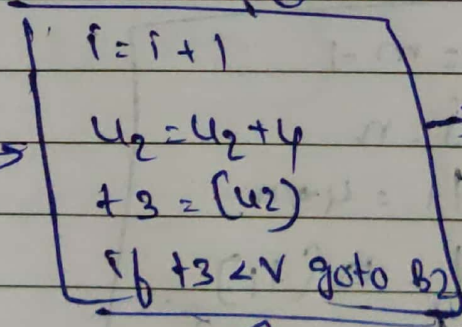 i = i + 1
u2 = u2 + 4
t3 = (u2)
if t3 < v goto B2